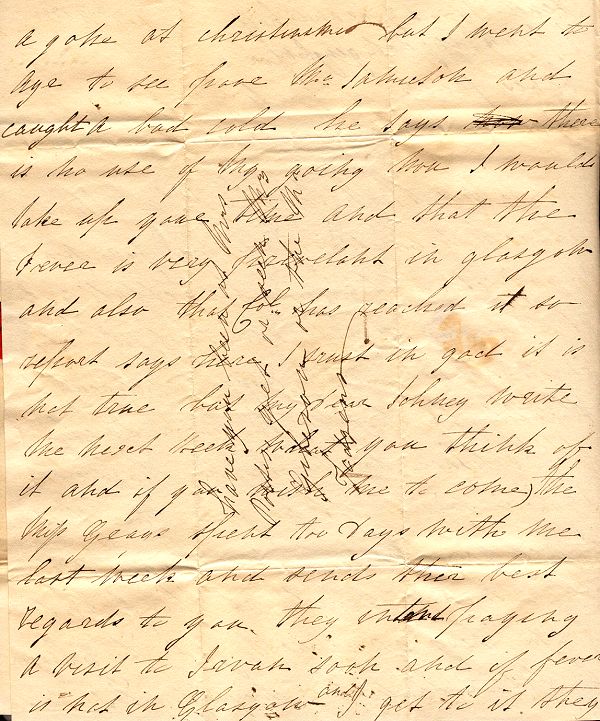 a joke at christinmas but I went to
Aye to see poor Mr Jamieson and
caught a bad cold he says there
is no use of my going thou I would
take up your time and that the
Fever is very prevelant in glasgow
and also that Col. has reached it so
report says here I trust in god it is
not true but my dear Johney write
the next week what you think of
it and if you wish me to come) the
Mis Geays spent too days with me
last week and sends ther best
regards to you. they intend paying
a visit to Irvan soon and if fever
is not in Glasgow and I get to it they
Have you been at Mrs
or seen Mrs
or the Mis